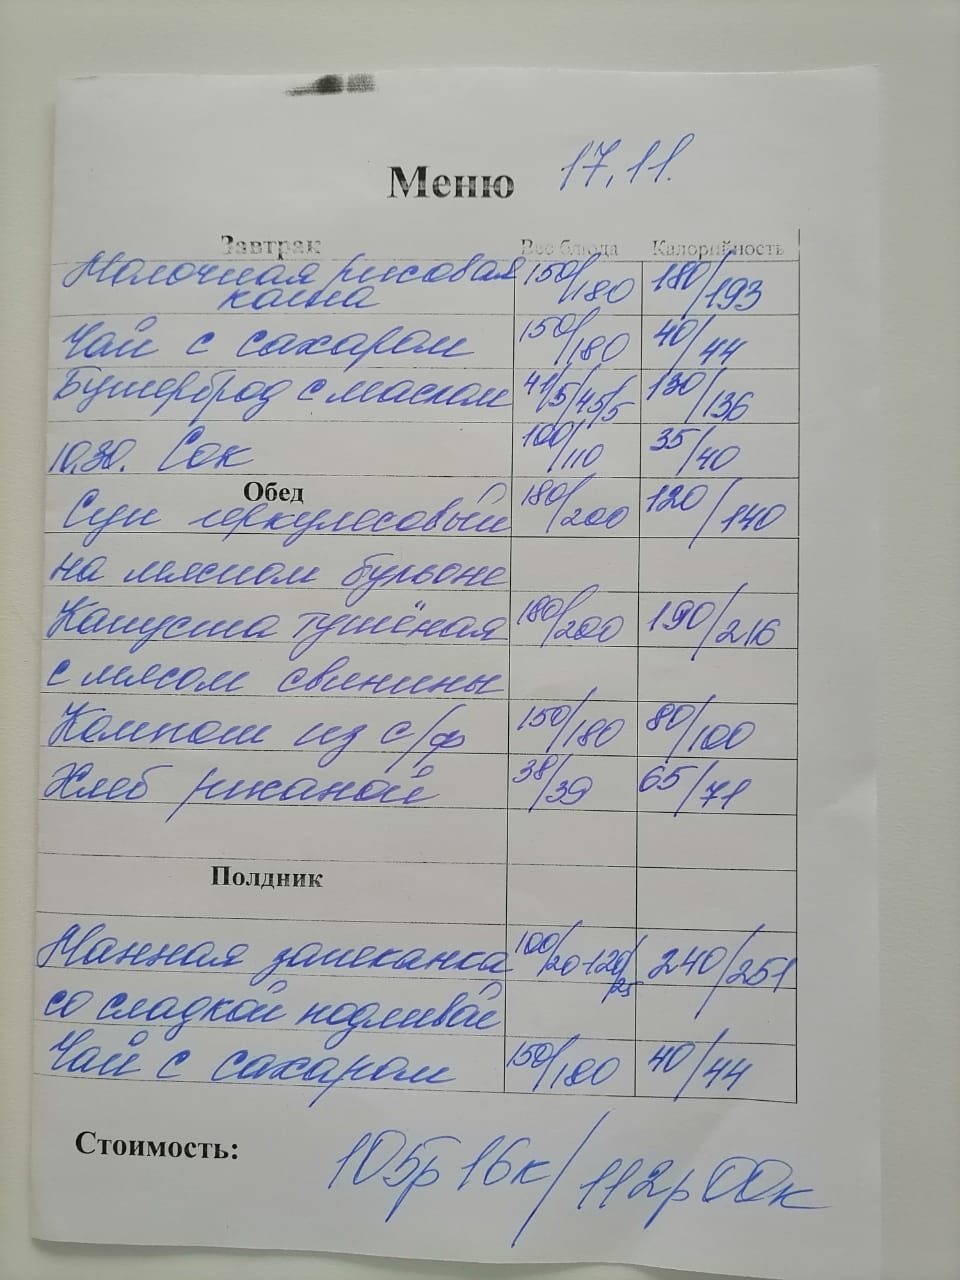 Меню 17.11.
Завтрак Вес блюда Калорийность
Молочная рисовая каша 150/180 180/193
Чай с сахаром 150/180 40/44
Бутерброд с маслом 41/5/45/5 130/136
10.30. Сок 100/110 35/40
Обед
Суп геркулесовый 180/200 120/140
на мясном бульоне
Капуста тушёная 180/200 190/216
с мясом свинины
Компот из с/ф 150/180 80/100
Хлеб ржаной 38/39 65/71
Полдник
Манная запеканка 100/20-120/25 240/251
со сладкой подливой
Чай с сахаром 150/180 40/44
Стоимость: 105р 16к/112р 00к